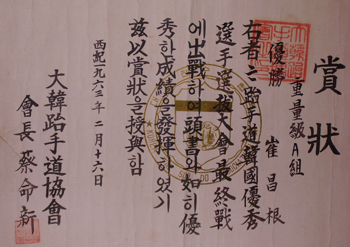 賞狀
優勝 重量級A組
崔昌根
右者는 跆手道韓國優秀
選手選拔大會 最終戰
에出戰하여 頭書와如히 優
秀한成績을發揮하였기
玆以賞狀을授與함
西紀一九六三年 二月十六日
大韓跆手道協會
會長 蔡命新